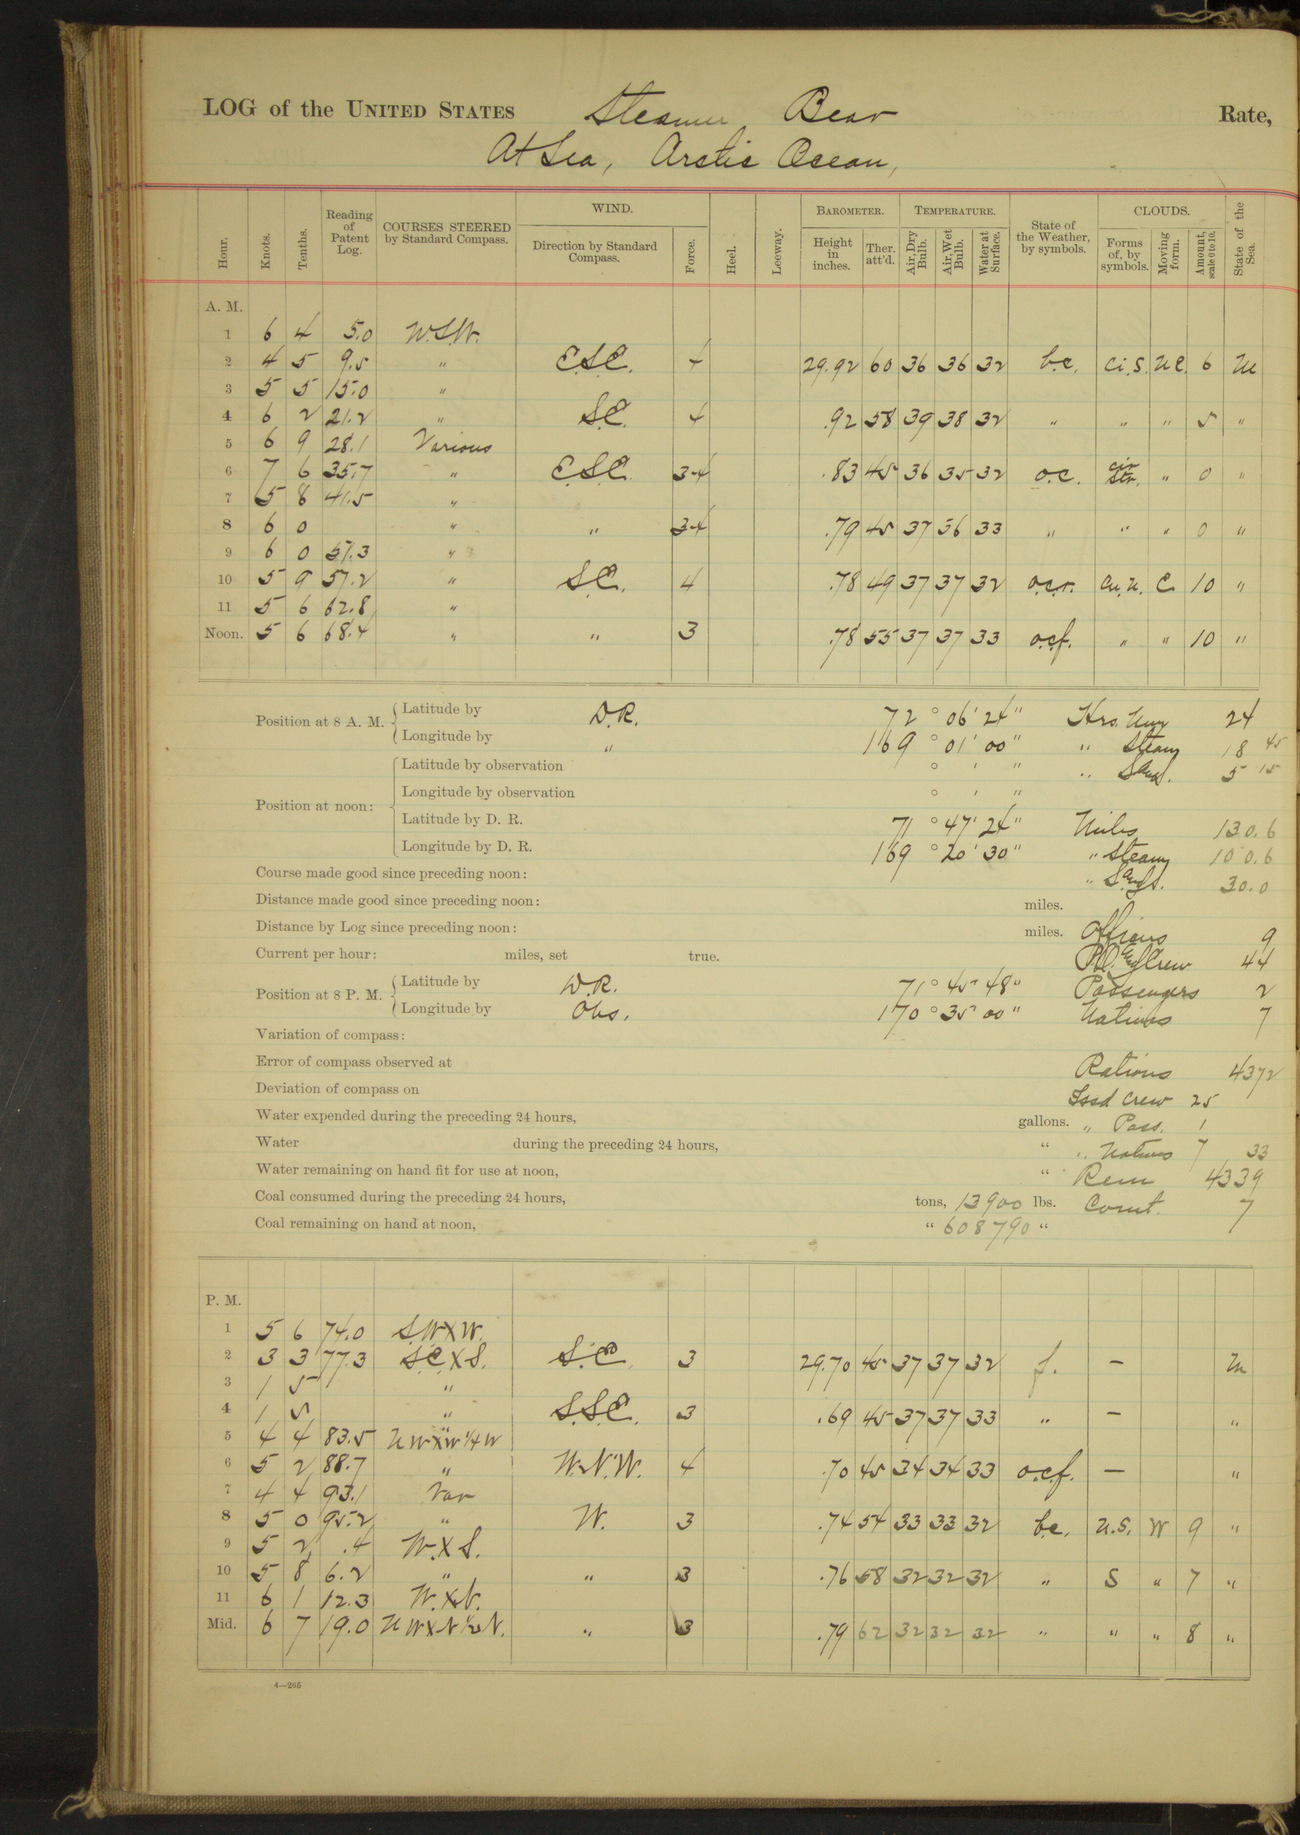 LOG of the UNITED STATES Steamer Bear Rate,
At Sea, Arctic Ocean,
Hour. Knots. Tenths. Reading of Patent Log. COURSES STEERED by Standard Compass. WIND. Direction by Standard Compass. Force. Heel. Leeway. BAROMETER. Height in inches. Ther. att'd. TEMPERATURE. Air, Dry Bulb. Air, Wet Bulb. Water at Surface. State of the Weather, by symbols. CLOUDS. Forms of, by symbols. Moving form. Amount, scale 0 to 10. State of the Sea.
A. M.
1 6 4 5.0 W.S.W.
2 4 5 9.5 " E.S.E. 4 29.92 60 36 36 32 b.c. Ci.S. N.E. 6 M
3 5 5 15.0 "
4 6 2 21.2 " S.E. 4 .92 58 39 38 32 " " " 5 "
5 6 9 28.1 Various
6 7 6 35.7 " E.S.E. 3-4 .83 45 36 35 32 o.c. " 0 "
7 5 8 41.5 "
8 6 0 " " 3-4 .79 45 37 36 33 " " " 0 "
9 6 0 51.3 "
10 5 9 57.2 " S.E. 4 .78 49 37 37 32 o.c.r. Cu.N. E. 10 "
11 5 6 62.8 "
Noon. 5 6 68.4 " " 3 .78 55 37 37 33 o.c.f. " " 10 "
Position at 8 A. M. Latitude by D.R. 72 ° 06 ' 24 " Hrs. Unw 24
Longitude by " 169 ° 01 ' 00 " " Steam 18 45
Latitude by observation ° ' " " 5 15
Position at noon: Longitude by observation ° ' "
Latitude by D. R. 71 ° 47 ' 24 " Miles 130.6
Longitude by D. R. 169 ° 20 ' 30 " " Steam 100.6
Course made good since preceding noon: " 30.0
Distance made good since preceding noon: miles.
Distance by Log since preceding noon: miles. Officers 9
Current per hour: miles, set true. Crew 44
Position at 8 P. M. Latitude by D.R. 71 ° 45 ' 48 " Passengers 2
Longitude by Obs. 170 ° 35 ' 00 " Natives 7
Variation of compass:
Error of compass observed at Rations 4372
Deviation of compass on Issd Crew 25
Water expended during the preceding 24 hours, gallons. " Pass. 1
Water during the preceding 24 hours, " " Natives 7 33
Water remaining on hand fit for use at noon, " Rem 4339
Coal consumed during the preceding 24 hours, tons, 13900 lbs. Comt. 7
Coal remaining on hand at noon, " 608790 "
P. M.
1 5 6 74.0 S.WXW.
2 3 3 77.3 S.EXS. S.E. 3 29.70 45 37 37 32 f. — M
3 1 5 "
4 1 5 " S.S.E. 3 .69 45 37 37 33 " — "
5 4 4 83.5 NWXW¼W
6 5 2 88.7 " W.N.W. 4 .70 45 34 34 33 o.c.f. — "
7 4 4 93.1 Var
8 5 0 95.2 " W. 3 .74 54 33 33 32 b.c. N.S. W 9 "
9 5 2 .4 W.XS.
10 5 8 6.2 " " 3 .76 58 32 32 32 " S " 7 "
11 6 1 12.3 W.XN.
Mid. 6 7 19.0 NWXN½N. " 3 .79 62 32 32 32 " " " 8 "
4—265